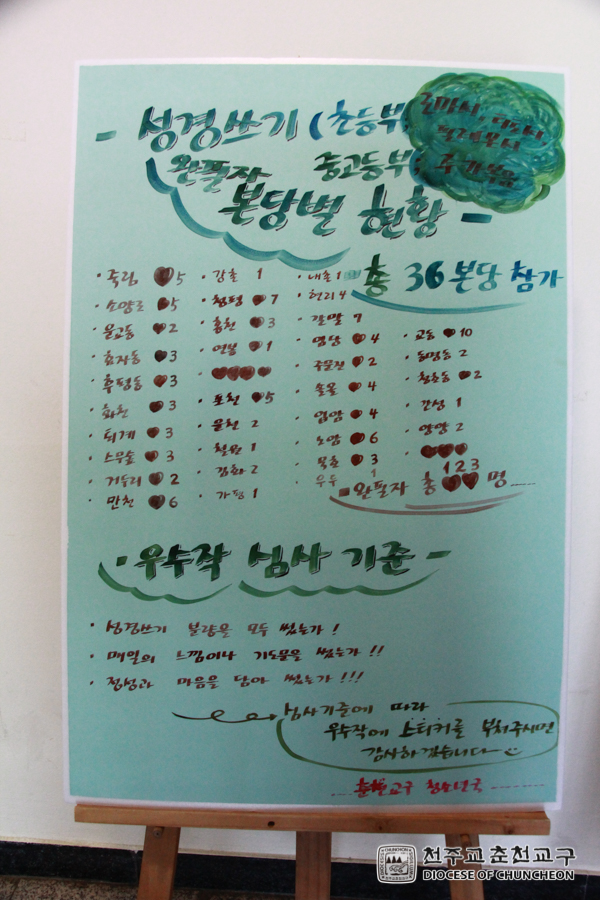 - 성경쓰기 (초등부, 로마서, 디도서,
필레몬서
완필자 중고등부, 루카복음
본당별 현황 -
총 36본당 참가
· 죽림 5
· 소양로 5
· 운교동 2
· 효자동 3
· 후평동 3
· 화천 3
· 퇴계 3
· 스무숲 3
· 거두리 2
· 만천 6
· 강촌 1
· 청평 7
· 홍천 3
· 연봉 1
· 포천 5
· 운천 2
· 철원 1
· 김화 2
· 가평 1
· 내촌 1
· 현리 4
· 갈말 7
· 임당 4
· 주문진 2
· 솔올 4
· 입암 4
· 노암 6
· 묵호 3
· 우두 1
· 교동 10
· 동명동 2
· 청호동 2
· 간성 1
· 양양 2
완필자 총 123 명
· 우수작 심사 기준 -
· 성경쓰기 분량을 모두 썼는가!
· 매일의 느낌이나 기도문을 썼는가!!
· 정성과 마음을 담아 썼는가!!!
심사기준에 따라
우수작에 스티커를 부쳐주시면
감사하겠습니다
춘천교구 청소년국
천주교 춘천교구
DIOCESE OF CHUNCHEON